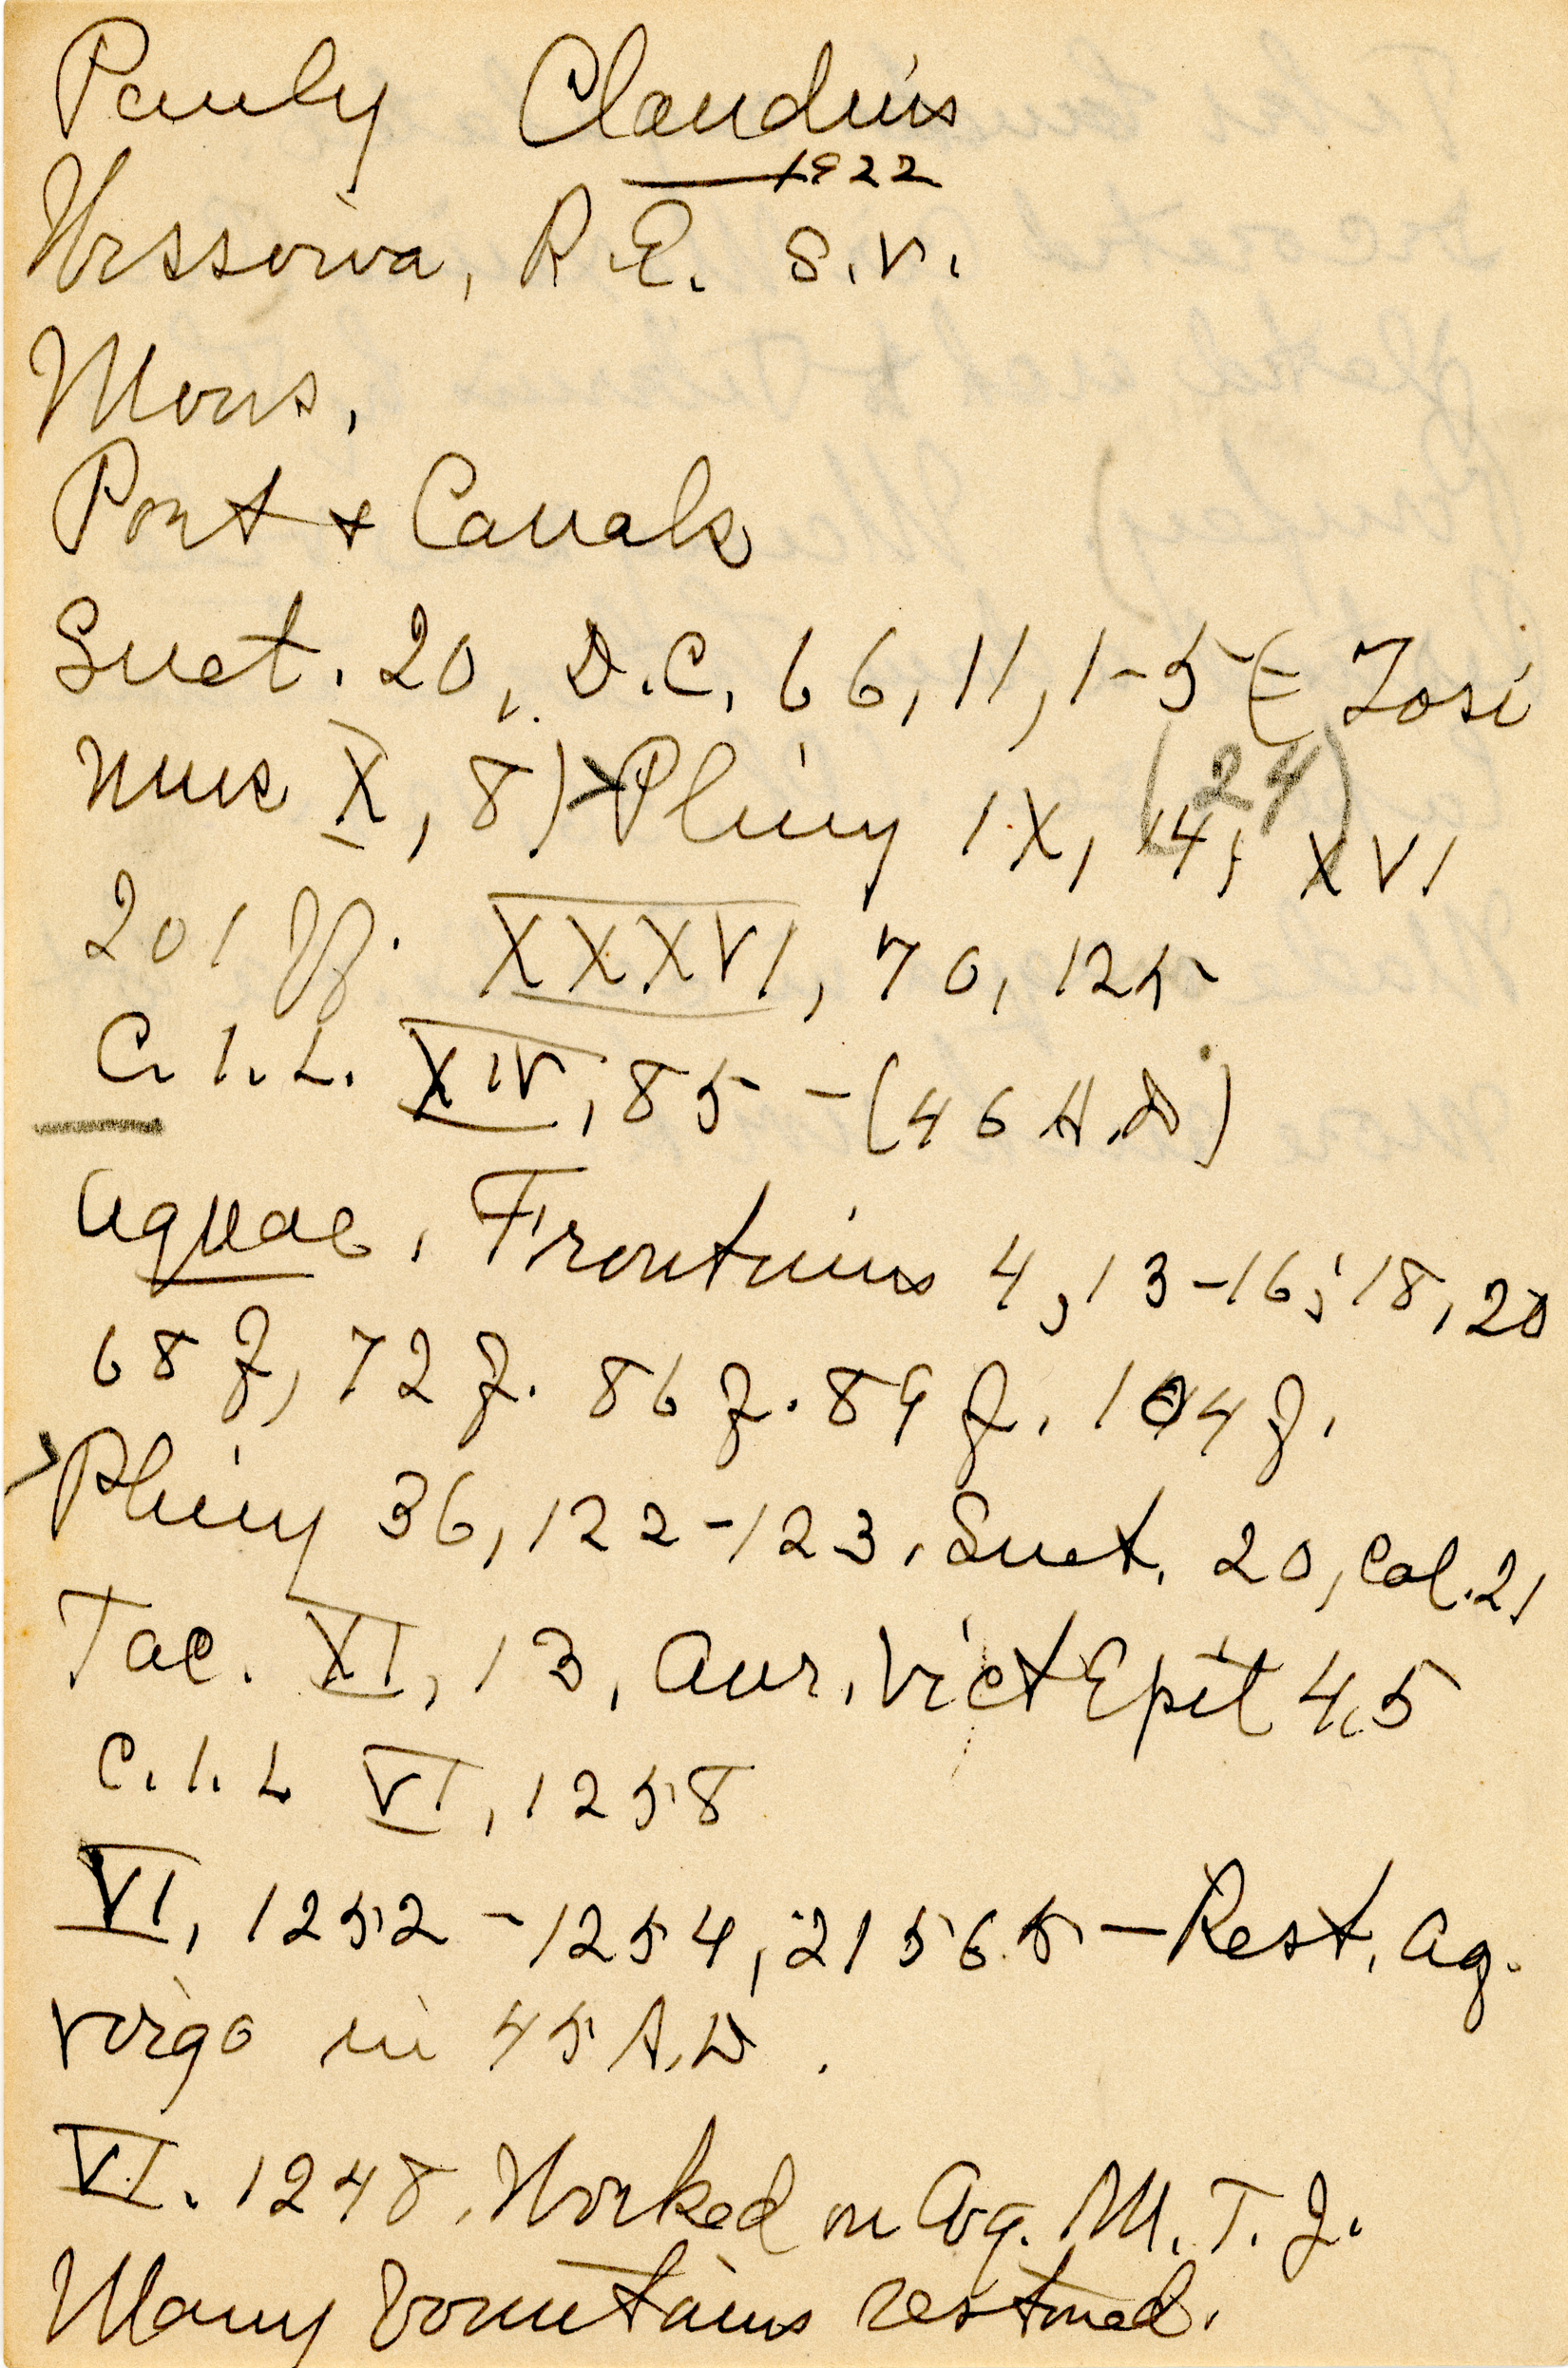 Pauly Claudius
1922
Wissowa, R.E. s.v.
Mons.
Port + Canals
Suet. 20, D.C. 66, 11, 1-5 (= Zosi
mus X, 8) > Pliny IX, 14, (24) XVI
201 ff. XXXVI, 70, 125
C.I.L. XIV, 85 - (46 A.D)
Aquae, Frontinus 4, 13-16; 18, 20
68 f, 72 f. 86 f. 89 f. 104 f.
> Pliny 36, 122-123. Suet. 20, Cal. 21
Tac. XI, 13, Aur. Vict Epit 4,5
C.I.L VI, 1258
VI, 1252 - 1254, 21565 - Rest. Aq.
Virgo in 45 A.D.
VI. 1248. Worked on Aq. M. T. J.
Many Fountains restored.